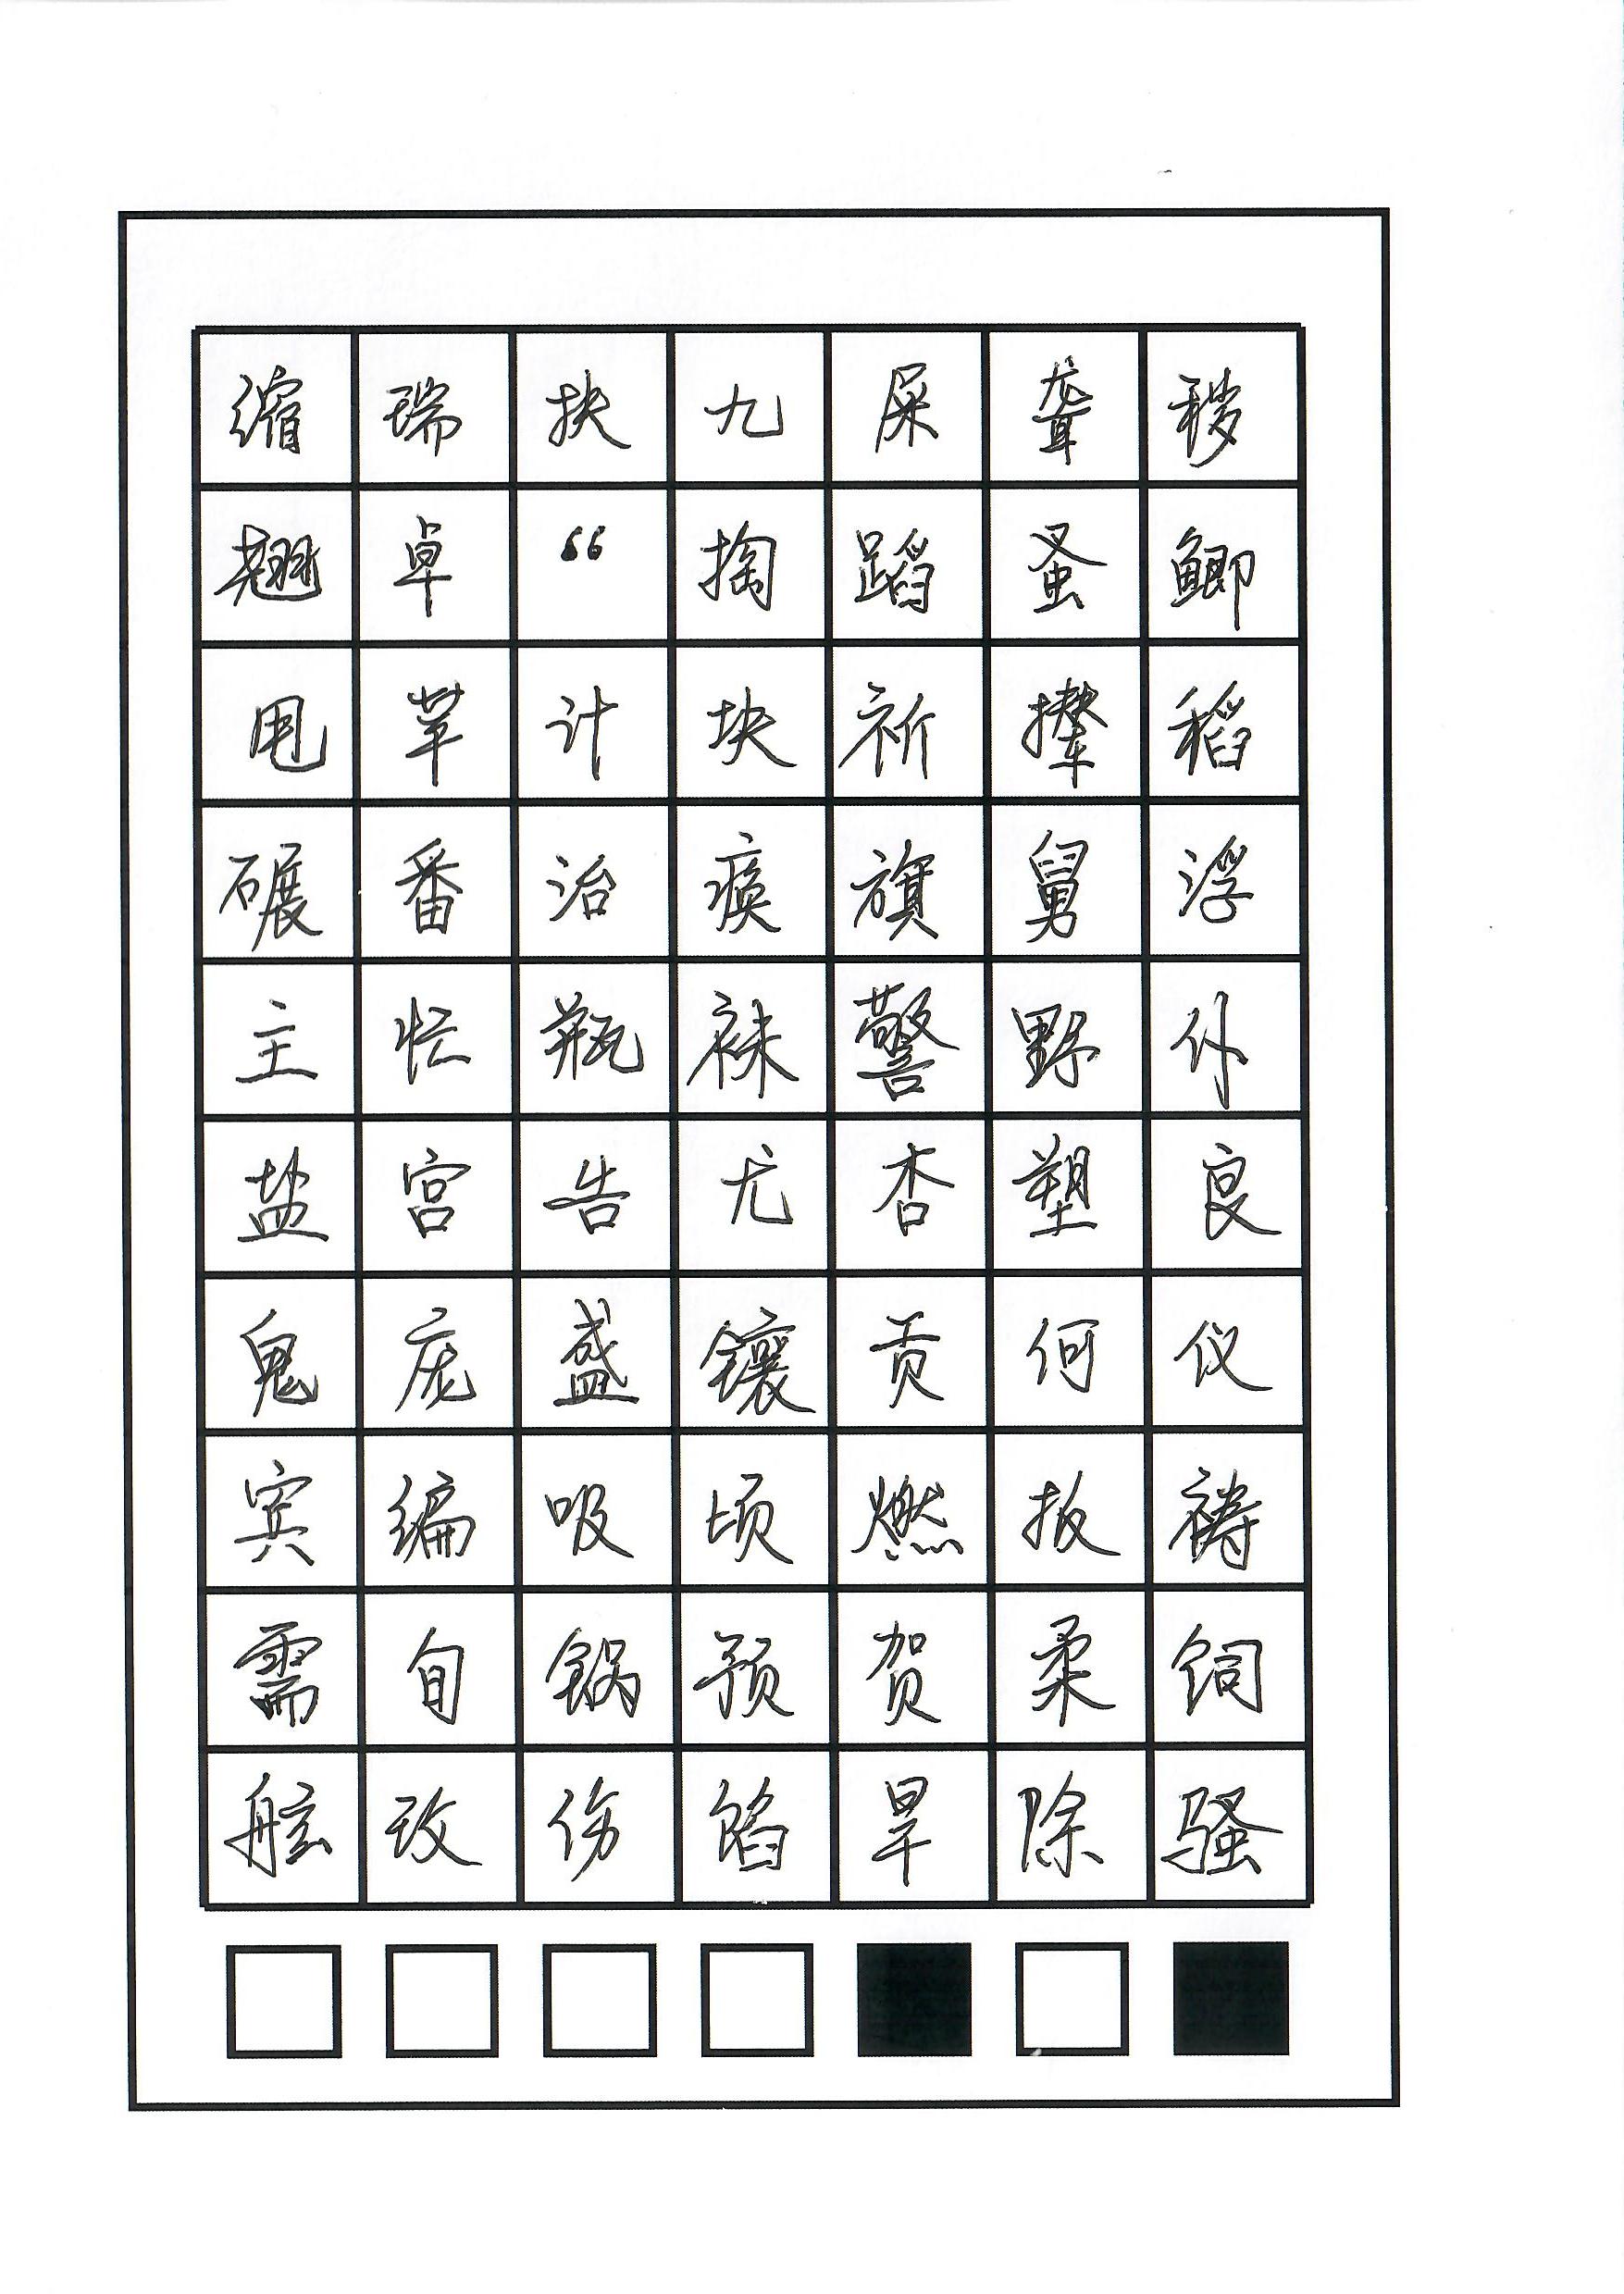 缩瑞扶九屎聋秽
翘卓“掏蹈蚤鲫
甩苹计块祈撵稻
碾番治痪旗舅浮
主忙瓶袜警野仆
盐宫告尤杏塑良
鬼庞盛镶贡何仪
宾编吸顷燃扳祷
需旬锅预贺柔饲
舷改伤馅旱除骚